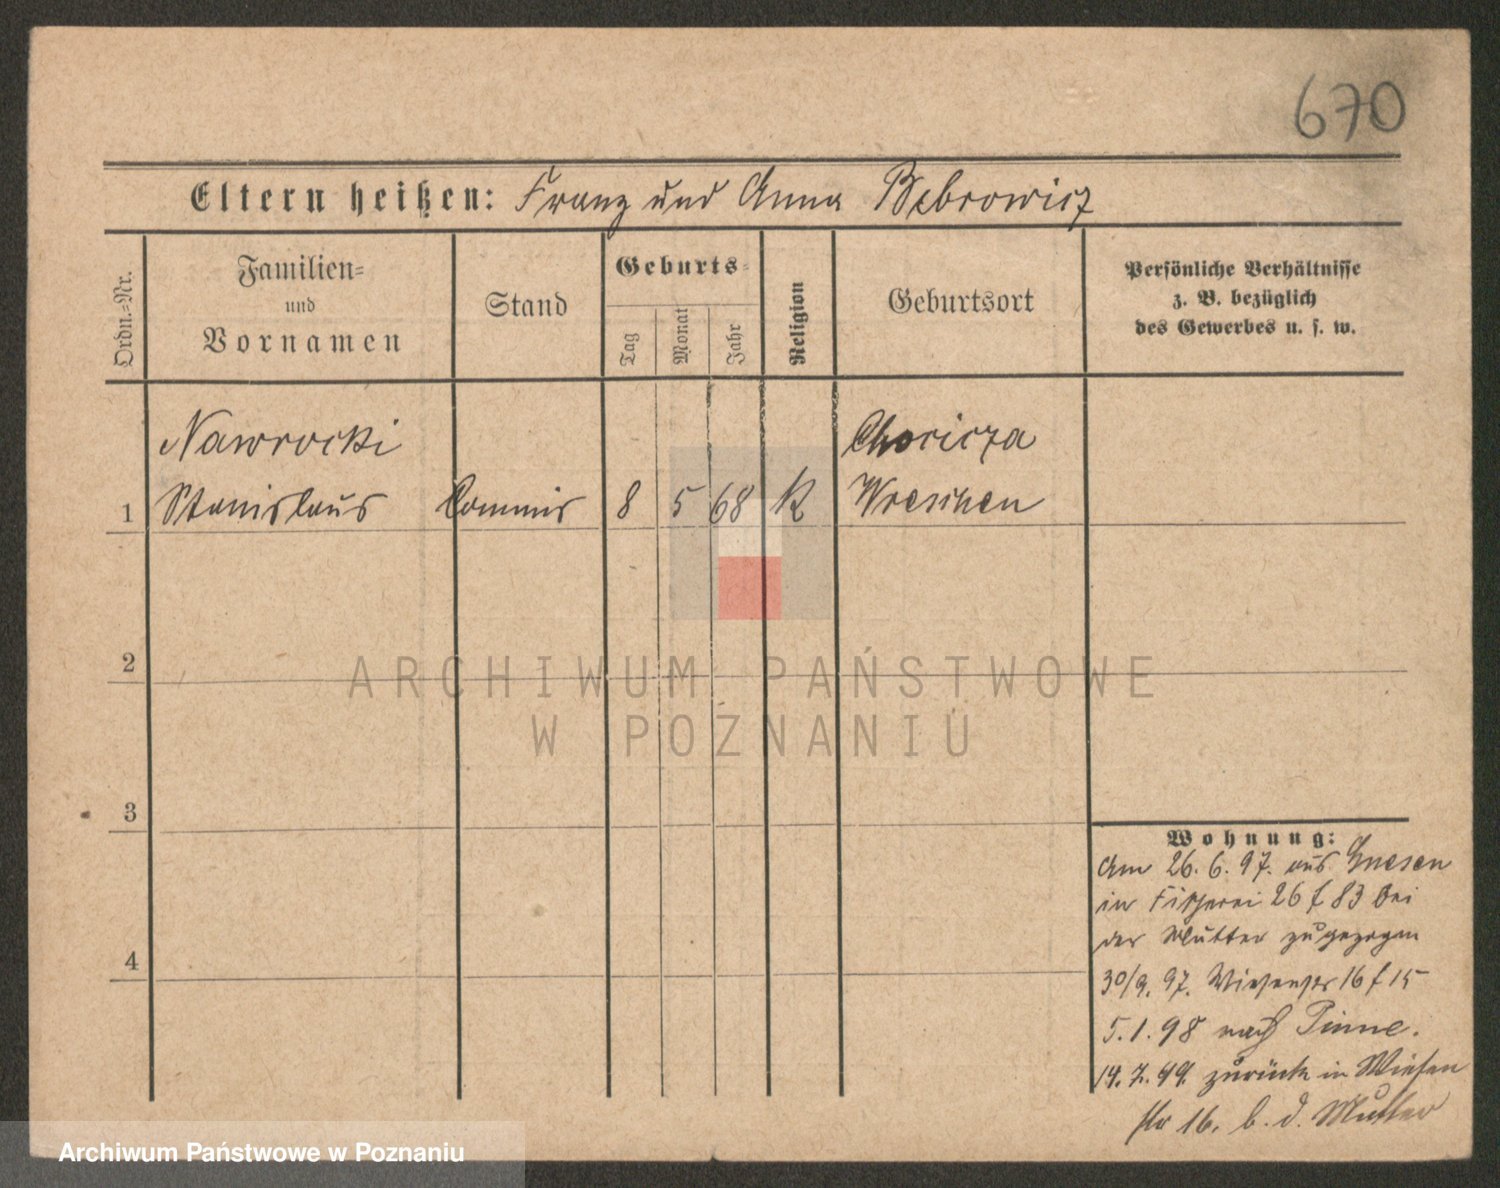 670
Eltern heißen: Franz und Anna Bebrowicz
Ordn.-Nr.
Familien-
und
Vornamen
Stand
Geburts-
Tag
Monat
Jahr
Religion
Geburtsort
Persönliche Verhältnisse
z. B. bezüglich
des Gewerbes u. s. w.
Nawrocki
Chocicza
1 Stanislaus Commis 8 5 68 K Wreschen
2
ARCHIWUM PAŃSTWOWE
W POZNANIU
3
Wohnung:
Am 26. 6. 97. aus Gnesen
in Fischerei 26 f 83 bei
der Mutter zugezogen
4
30/9. 97. Wiesenstr 16 f 15
5. 1. 98 nach Pinne.
14. 7. 99. zurück in Wiesen
str 16. b. d. Mutter
Archiwum Państwowe w Poznaniu